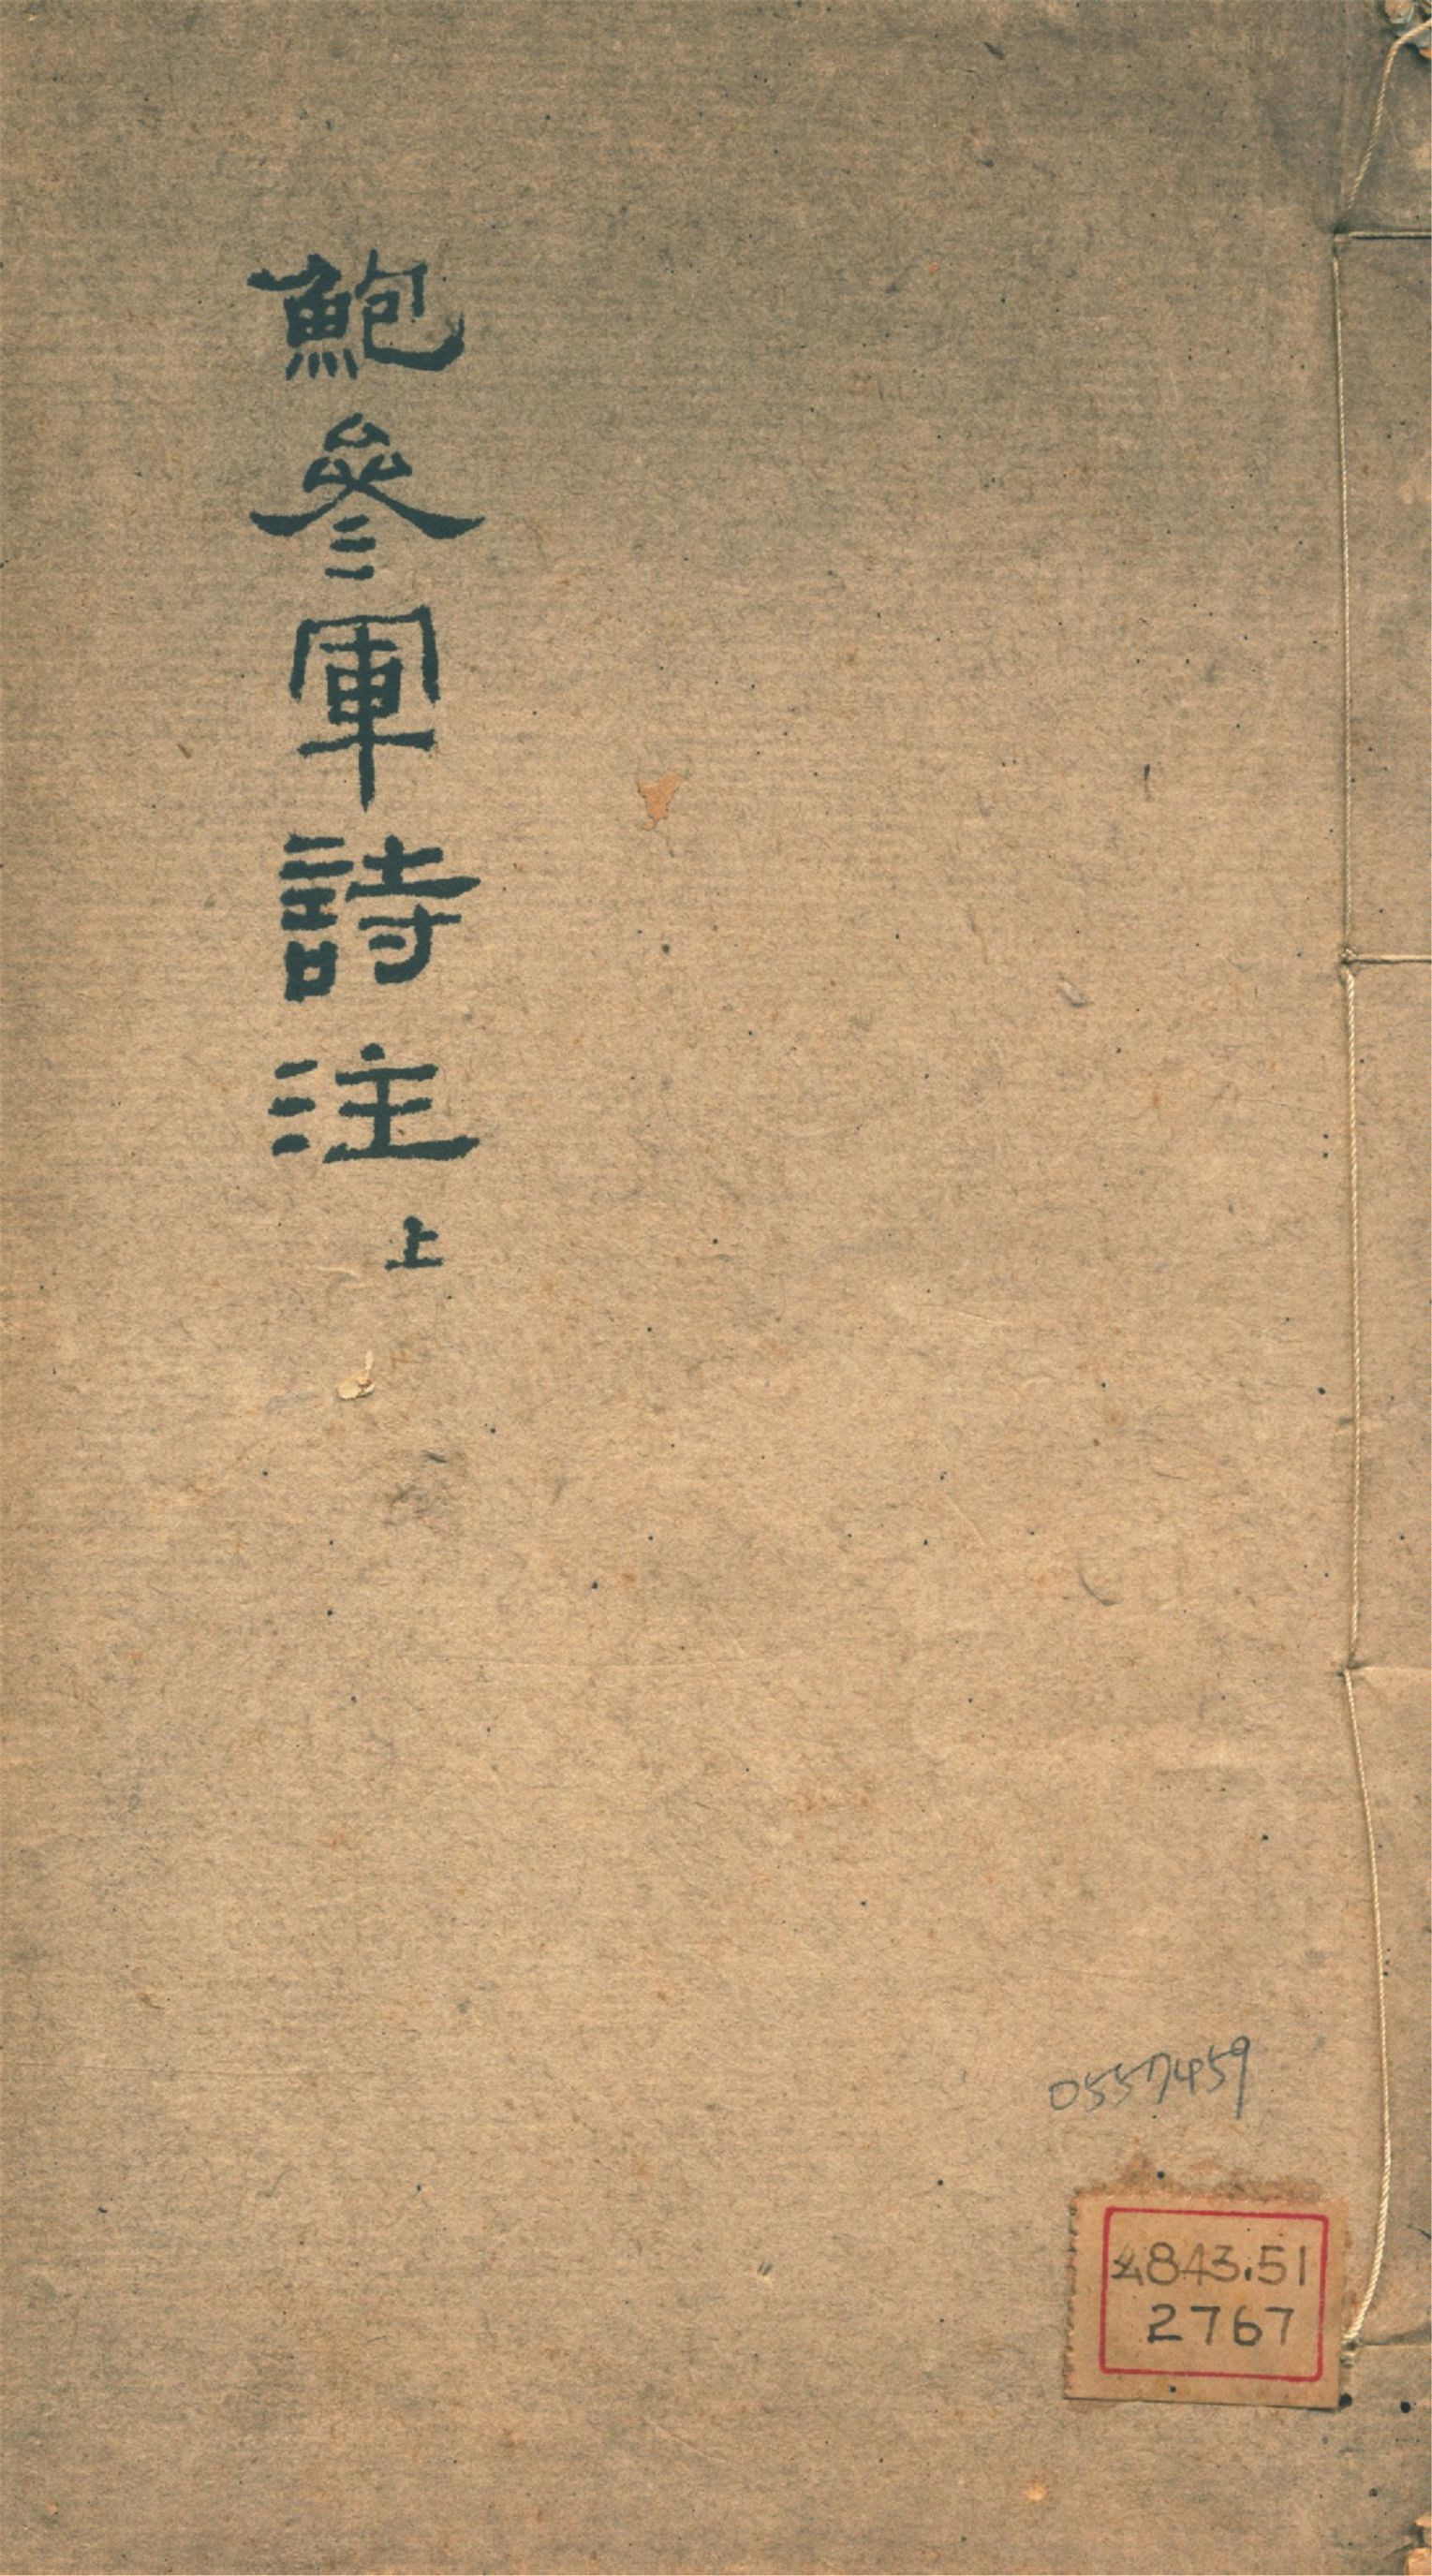 鮑參軍詩注 上
0557459
4843.51
2767